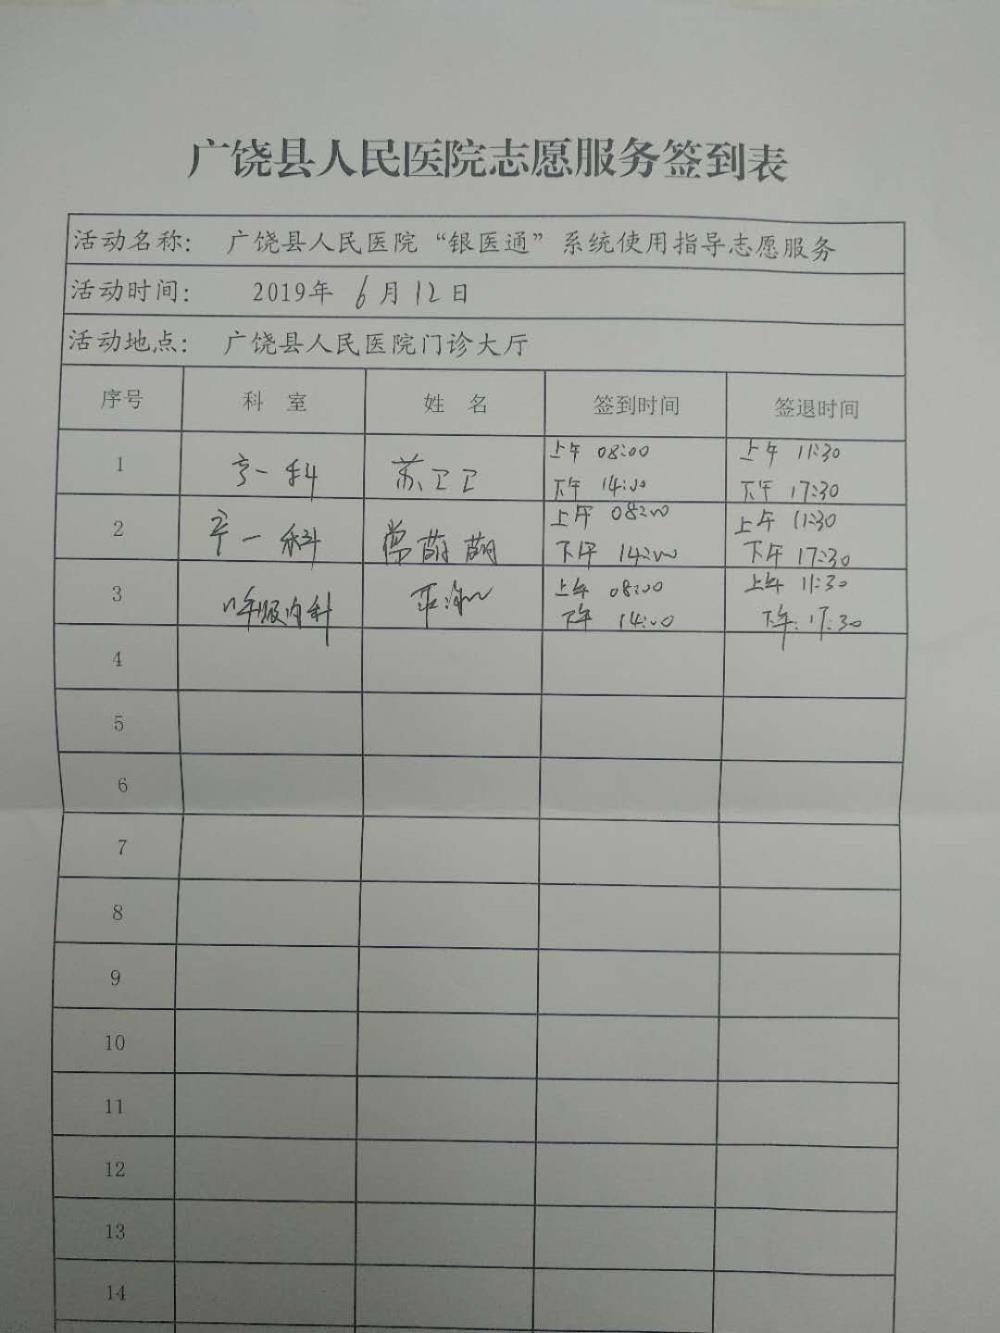 广饶县人民医院志愿服务签到表
活动名称： 广饶县人民医院“银医通”系统使用指导志愿服务
活动时间： 2019年 6月12日
活动地点： 广饶县人民医院门诊大厅
序号 科 室 姓 名 签到时间 签退时间
上午 08:00 上午 11:30
1 产一科 苏卫卫
下午 14:00 下午 17:30
上午 08:00 上午 11:30
2 产一科 常萌萌
下午 14:00 下午 17:30
上午 08:00 上午 11:30
3 呼吸内科
下午 14:00 下午 17:30
4
5
6
7
8
9
10
11
12
13
14